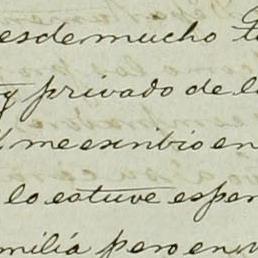 esde mucho
privado de l
me escribio en
lo estuve esper
milia pero en